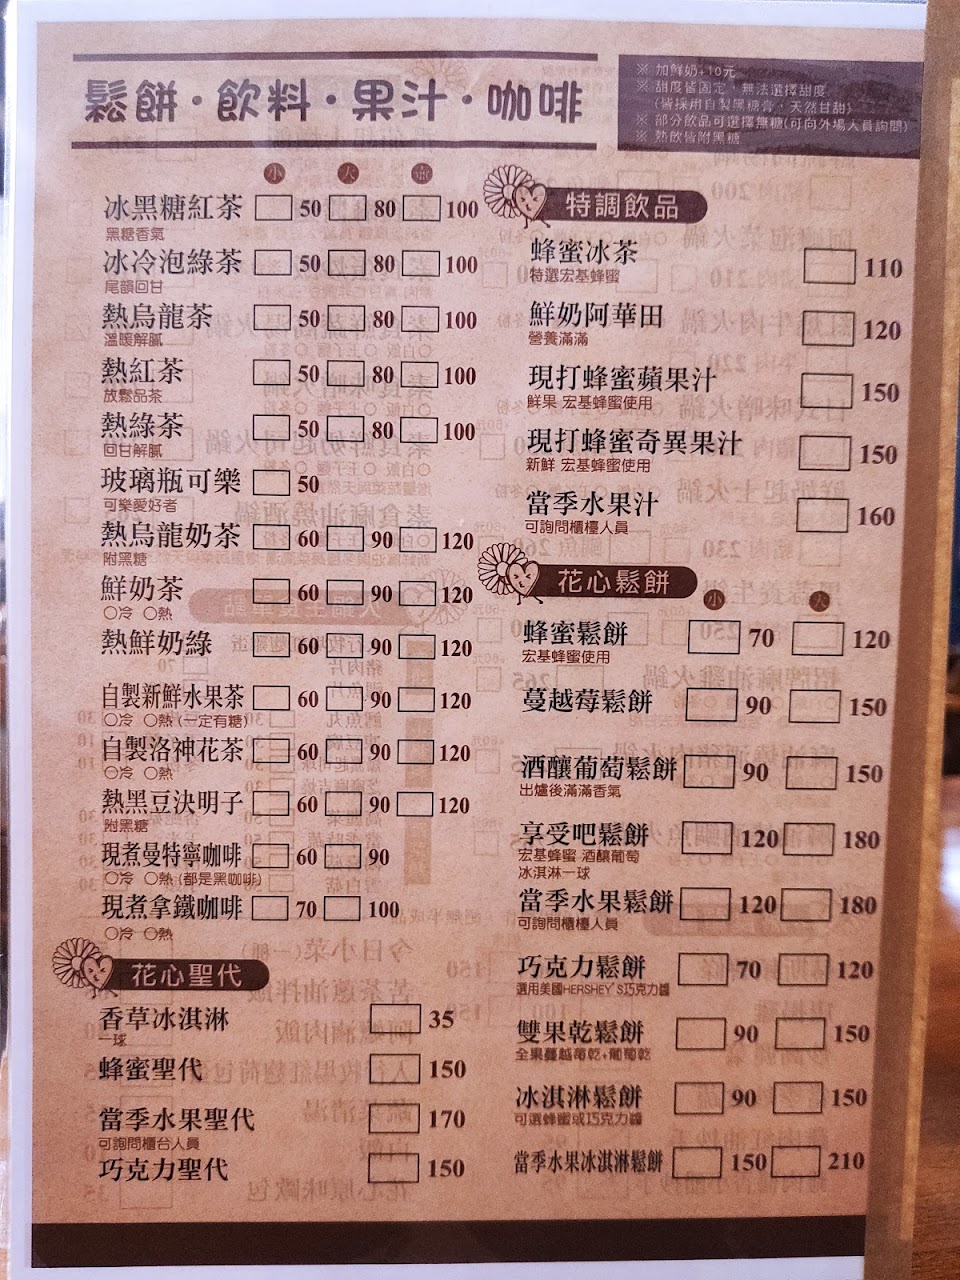 鬆餅・飲料・果汁・咖啡
※ 加鮮奶+10元
※ 甜度皆固定，無法選擇甜度
(皆採用自製黑糖膏，天然甘甜)
※ 部分飲品可選擇無糖(可向外場人員詢問)
※ 熱飲皆附黑糖
小 大 壺
冰黑糖紅茶 50 80 100
黑糖香氣
冰冷泡綠茶 50 80 100
尾韻回甘
熱烏龍茶 50 80 100
溫暖解膩
熱紅茶 50 80 100
放鬆品茶
熱綠茶 50 80 100
回甘解膩
玻璃瓶可樂 50
可樂愛好者
熱烏龍奶茶 60 90 120
附黑糖
鮮奶茶 60 90 120
○冷 ○熱
熱鮮奶綠 60 90 120
自製新鮮水果茶 60 90 120
○冷 ○熱(一定有糖)
自製洛神花茶 60 90 120
○冷 ○熱
熱黑豆決明子 60 90 120
附黑糖
現煮曼特寧咖啡 60 90
○冷 ○熱(都是黑咖啡)
現煮拿鐵咖啡 70 100
○冷 ○熱
花心聖代
香草冰淇淋 35
一球
蜂蜜聖代 150
當季水果聖代 170
可詢問櫃台人員
巧克力聖代 150
特調飲品
蜂蜜冰茶 110
特選宏基蜂蜜
鮮奶阿華田 120
營養滿滿
現打蜂蜜蘋果汁 150
鮮果 宏基蜂蜜使用
現打蜂蜜奇異果汁 150
新鮮 宏基蜂蜜使用
當季水果汁 160
可詢問櫃檯人員
花心鬆餅
小 大
蜂蜜鬆餅 70 120
宏基蜂蜜使用
蔓越莓鬆餅 90 150
酒釀葡萄鬆餅 90 150
出爐後滿滿香氣
享受吧鬆餅 120 180
宏基蜂蜜 酒釀葡萄
冰淇淋一球
當季水果鬆餅 120 180
可詢問櫃檯人員
巧克力鬆餅 70 120
選用美國HERSHEY'S巧克力醬
雙果乾鬆餅 90 150
全果蔓越莓乾+葡萄乾
冰淇淋鬆餅 90 150
可選蜂蜜或巧克力醬
當季水果冰淇淋鬆餅 150 210